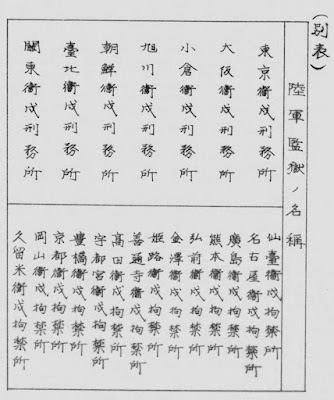 (別表)
陸軍監獄ノ名稱
東京衛戍刑務所
大阪衛戍刑務所
小倉衛戍刑務所
旭川衛戍刑務所
朝鮮衛戍刑務所
臺北衛戍刑務所
關東衛戍刑務所
仙臺衛戍拘禁所
名古屋衛戍拘禁所
廣島衛戍拘禁所
熊本衛戍拘禁所
弘前衛戍拘禁所
金澤衛戍拘禁所
姫路衛戍拘禁所
善通寺衛戍拘禁所
高田衛戍拘禁所
宇都宮衛戍拘禁所
豊橋衛戍拘禁所
京都衛戍拘禁所
岡山衛戍拘禁所
久留米衛戍拘禁所